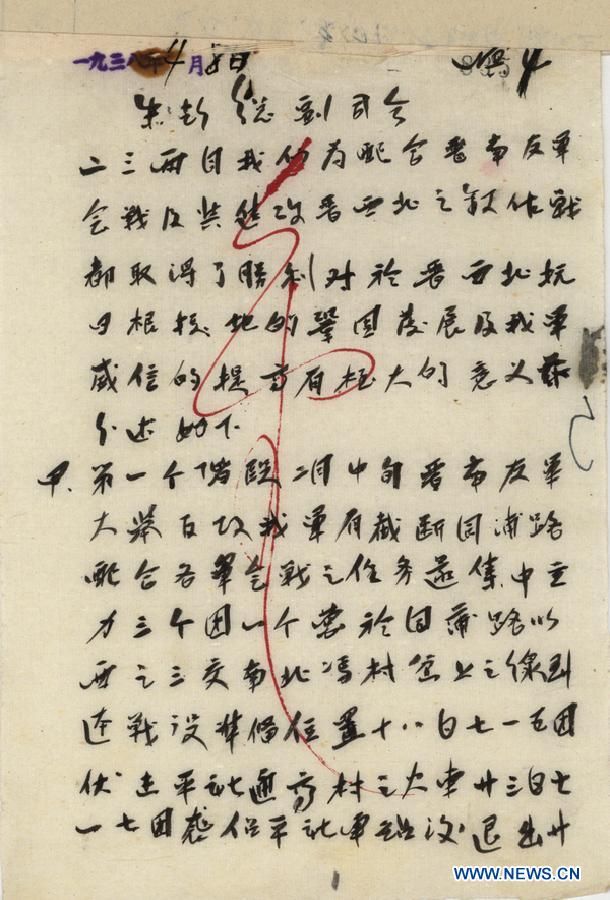 一九三八年4月8日
朱彭 总副司令
二三两月我们为配合晋南友军
会战及 进攻晋西北之敌作战
都取得了勝利对於晋西北抗
日根据地的鞏固发展及我軍
威信的提高有极大的意义茲
分述如下
甲.第一个階段二月中旬晋南友軍
大举反攻我軍有截断同浦路
配合各軍会战之任务 集中主
力三个团一个营於同蒲路以
西之三交南北冯村 上之缐到
达战 準備位置十八日七一五团
伏击平社 高村之火車廿三日七
一七团 平社車站 退出廿
WWW.NEWS.CN